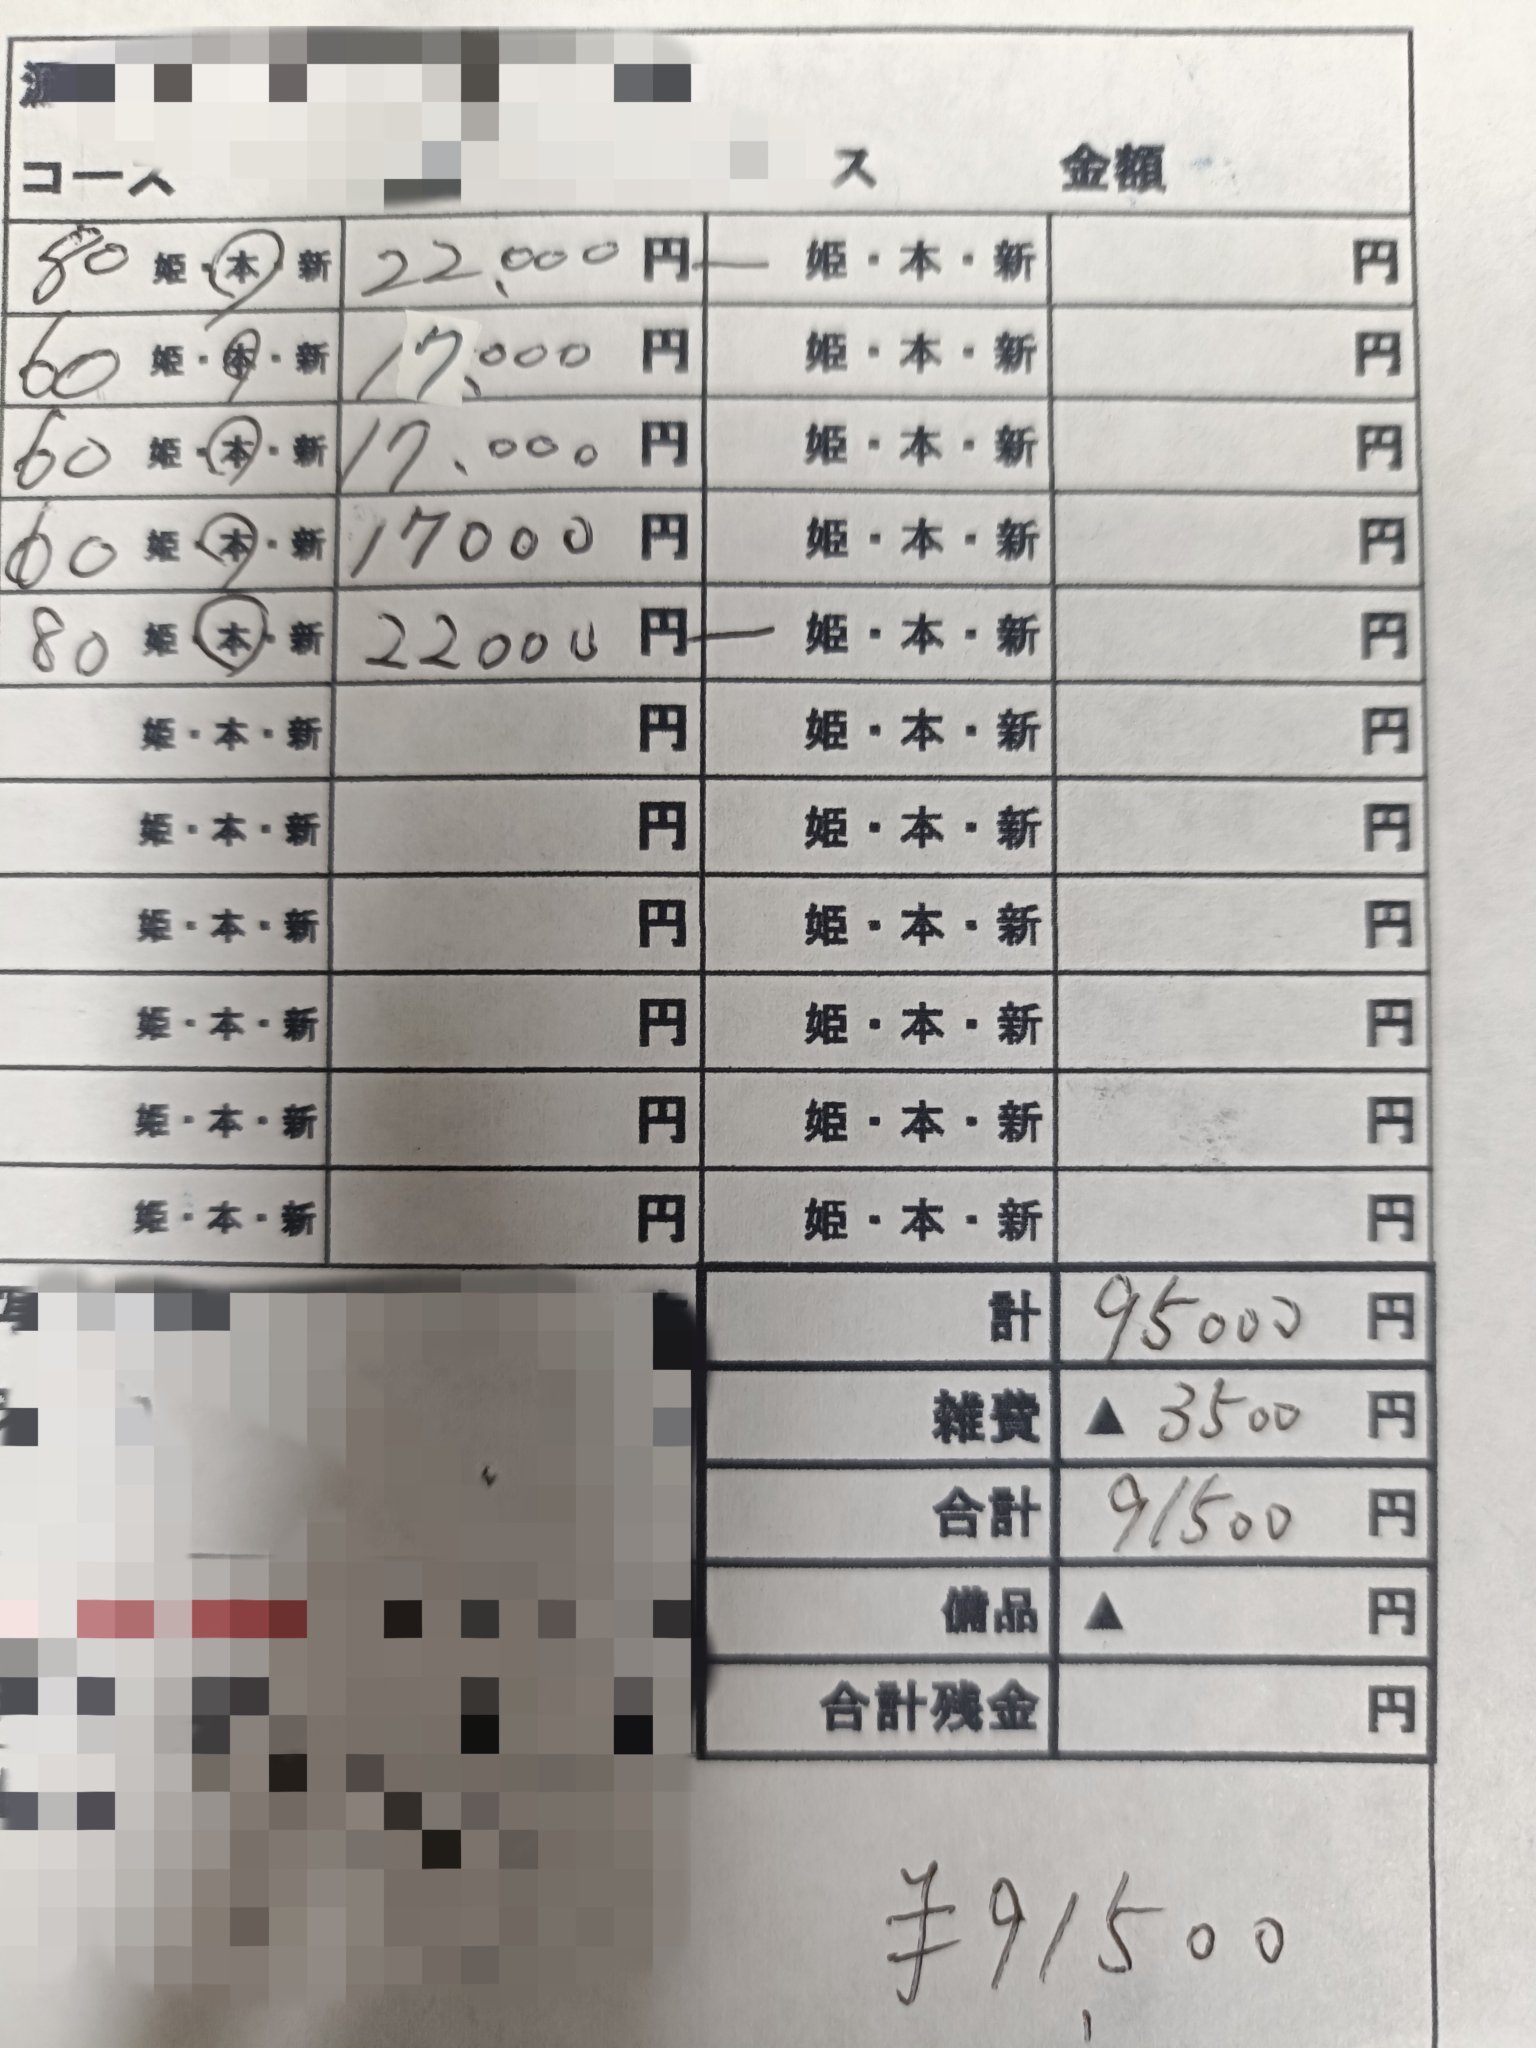 コース ス 金額
80 姫・本・新 22,000 円 姫・本・新 円
60 姫・本・新 17,000 円 姫・本・新 円
60 姫・本・新 17,000 円 姫・本・新 円
60 姫・本・新 17000 円 姫・本・新 円
80 姫・本・新 22000 円 姫・本・新 円
姫・本・新 円 姫・本・新 円
姫・本・新 円 姫・本・新 円
姫・本・新 円 姫・本・新 円
姫・本・新 円 姫・本・新 円
姫・本・新 円 姫・本・新 円
姫・本・新 円 姫・本・新 円
計 95000 円
雑費 ▲ 3500 円
合計 91500 円
備品 ▲ 円
合計残金 円
¥91,500